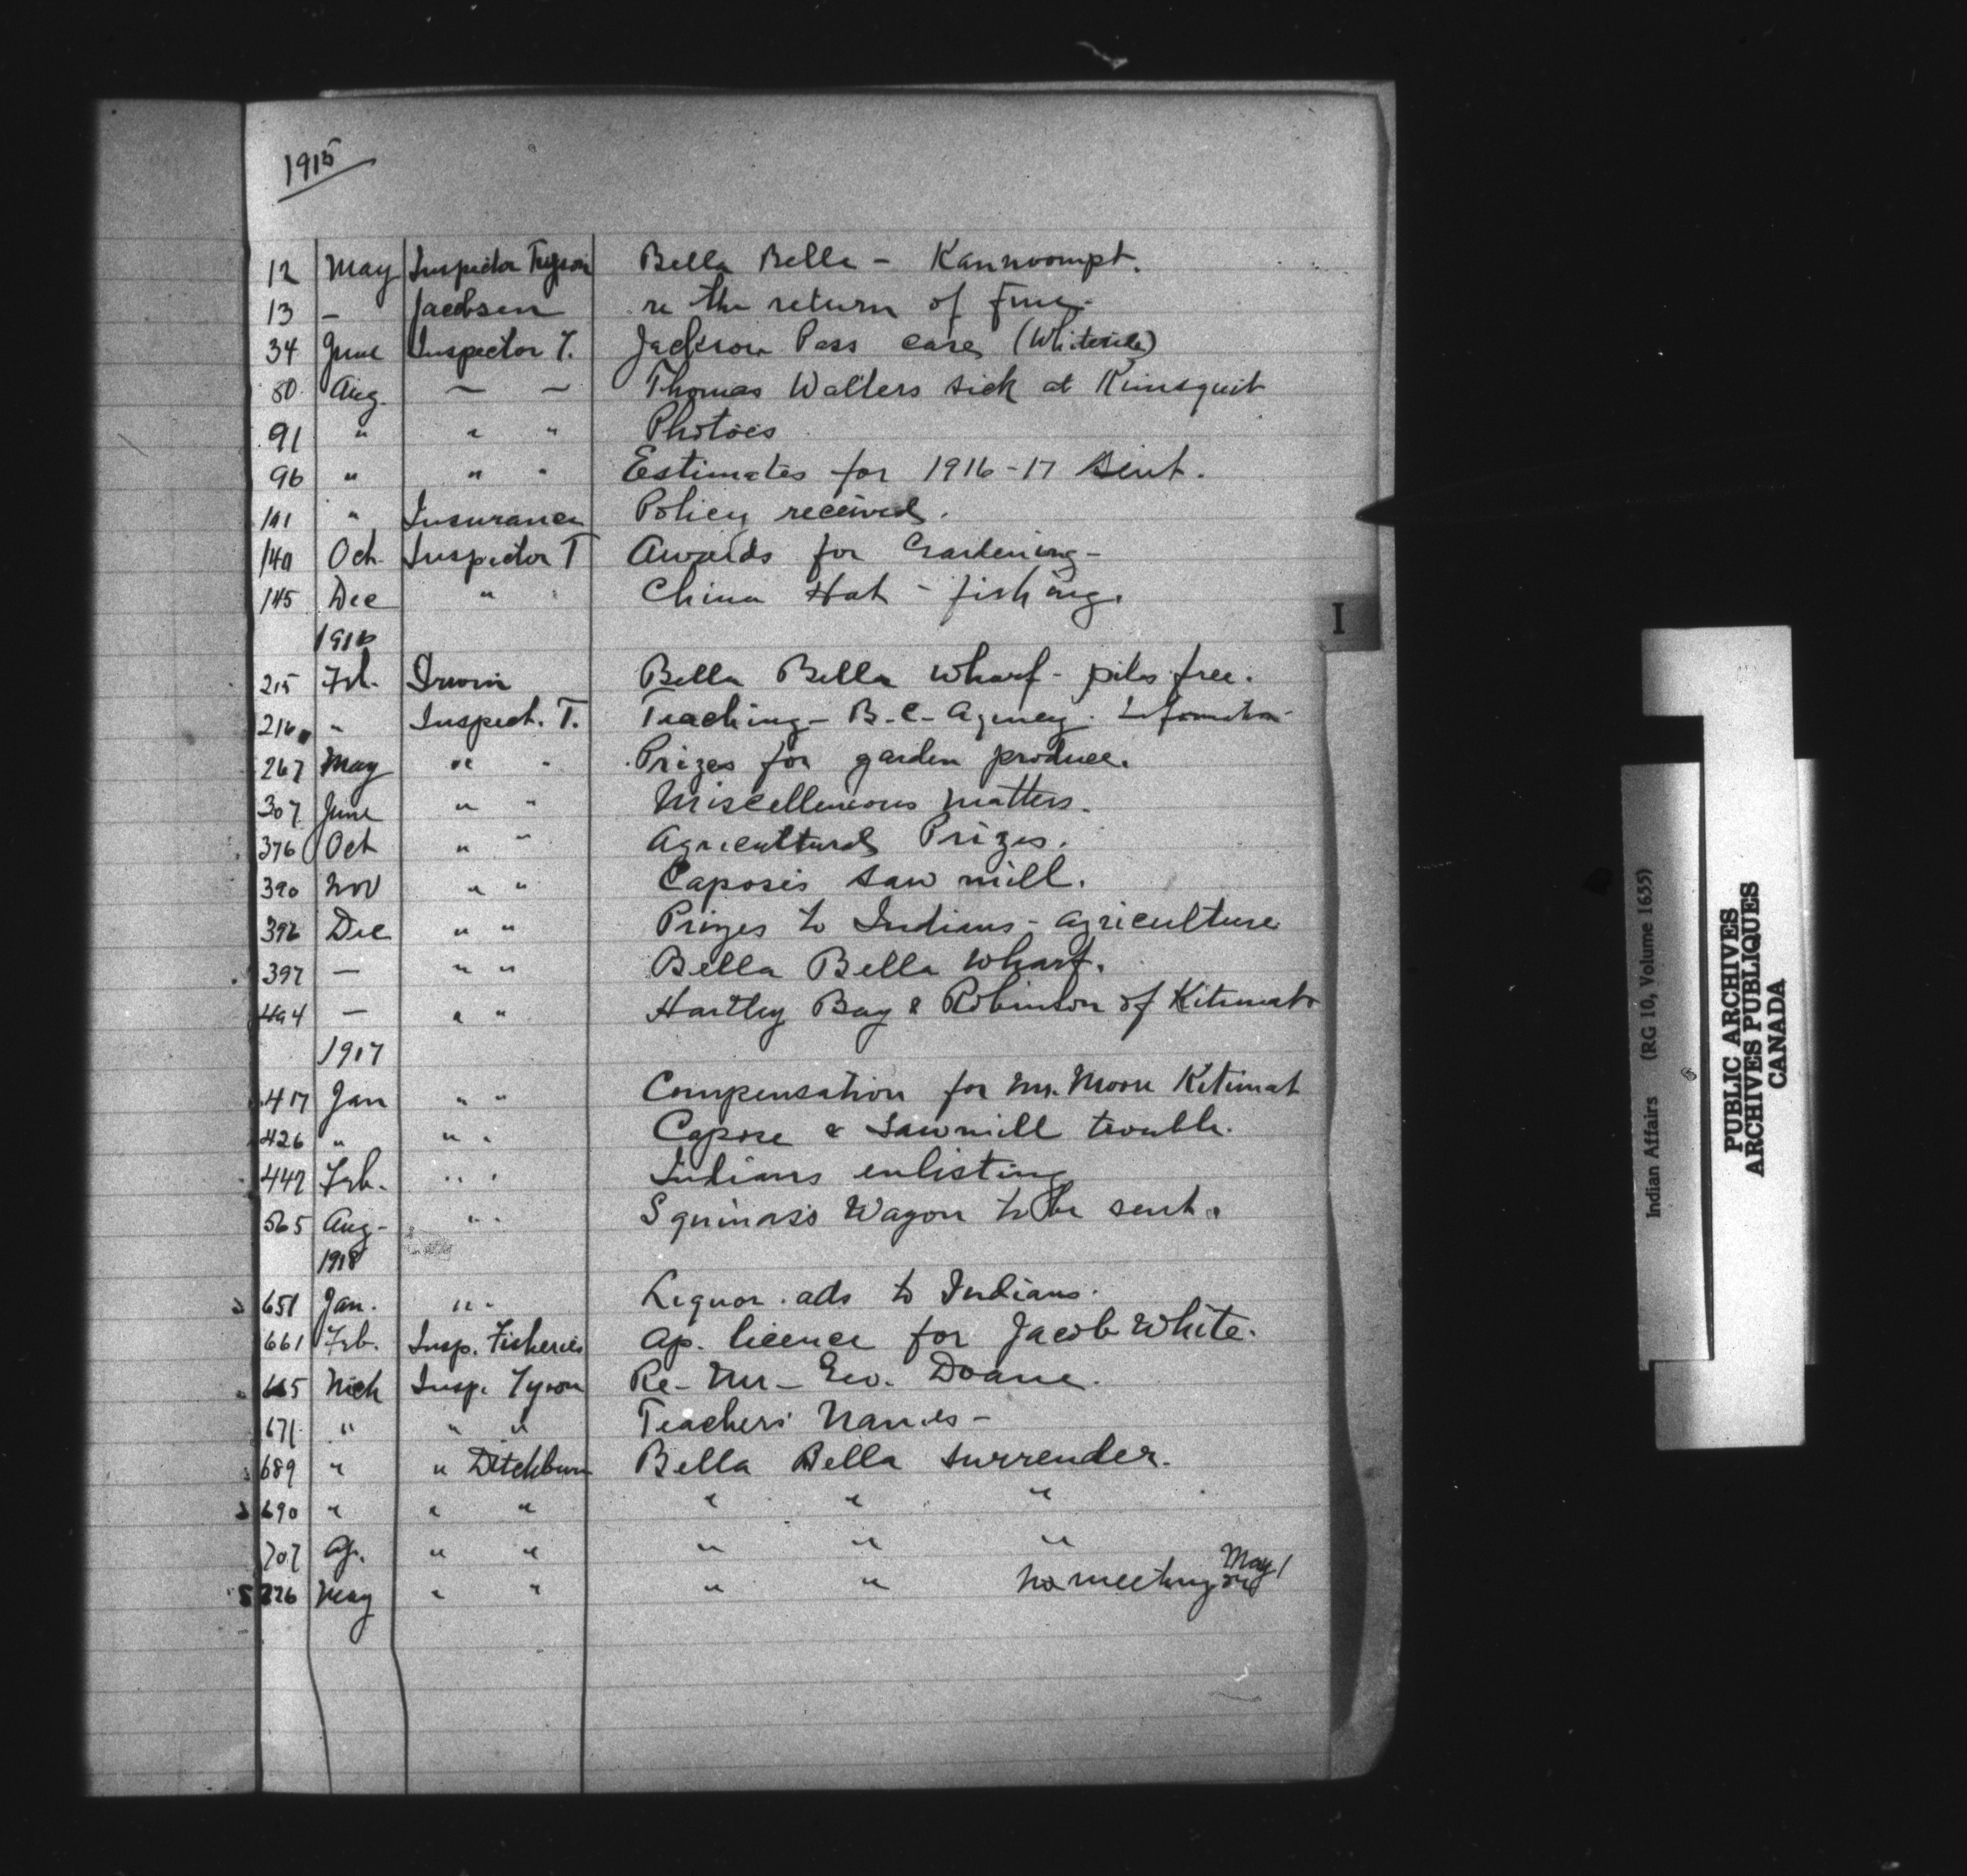 1915
12 May Inspector Tyson Bella Bella - Kannoompt.
13 - Jacobsen re the return of fine.
34 June Inspector T. Jackson Pass case (Whiteside)
80 Aug. - - Thomas Walters sick at Kimsquit
91 " " " Photoes
96 " " " Estimates for 1916-17 sent.
" Insurance Policy received.
140 Oct. Inspector T Awards for Gardening -
145 Dec " " China Hat - fishing.
1916
215 Feb. Irwin Bella Bella wharf - piles free.
216 - Inspect. T. Teaching - B.C. Agency. Information -
267 May " " Prizes for garden produce.
307 June " " Miscelleneous matters.
376 Oct " " Agricultural Prizes.
390 Nov " " Capose's saw mill.
396 Dec " " Prizes to Indians - agriculture
397 - " " Bella Bella wharf.
404 - " " Hartley Bay & Robinson of Kitimat
1917
417 Jan " " Compensation for Mr. Moore Kitimat
426 " " " Capose & sawmill trouble.
442 Feb. " " Indians enlisting
565 Aug - " " Squinas's Wagon to be sent.
1918
651 Jan. " " Liquor ads to Indians.
661 Feb. Insp. Fisheries Ap. licence for Jacob White.
665 Mch Insp. Tyson Re - Mr - Geo. Doane.
671 " " " Teachers' Names -
689 " " Ditchburn Bella Bella surrender.
690 " " " " " "
707 Ap. " " " " "
726 May " " " " No meeting May
I
Indian Affairs (RG 10, Volume 1655)
PUBLIC ARCHIVES
ARCHIVES PUBLIQUES
CANADA